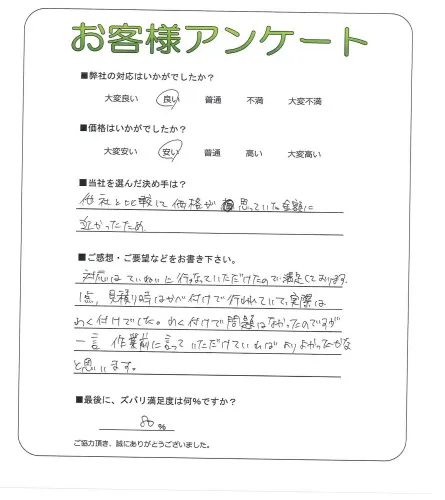 お客様アンケート
■弊社の対応はいかがでしたか？
大変良い 良い 普通 不満 大変不満
■価格はいかがでしたか？
大変安い 安い 普通 高い 大変高い
■当社を選んだ決め手は？
他社と比較して価格が思っていた金額に
近かったため
■ご感想・ご要望などをお書き下さい。
対応はていねいに行なっていただけたので満足しております。
1点、見積り時はかべ付けで行われていて、実際は
わく付けでした。わく付けで問題はなかったのですが
一言 作業前に言っていただけていればよりよかったかな
と思います。
■最後に、ズバリ満足度は何%ですか？
80 %
ご協力頂き、誠にありがとうございました。